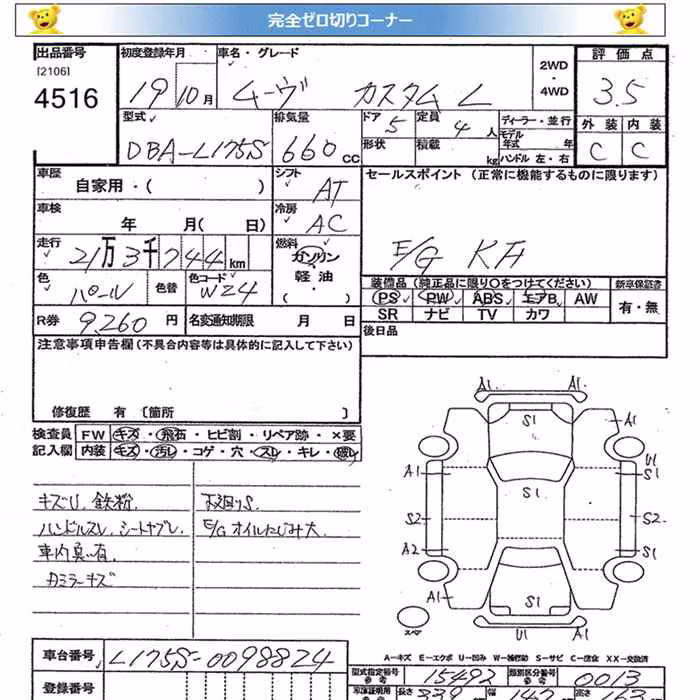 完全ゼロ切りコーナー
出品番号 初度登録年月 車名・グレード 2WD・4WD 評価点
[2106] 4516 19 10月 ムーヴ カスタム L 3.5
型式 排気量 ドア 定員 ディーラー・並行 外装 内装
DBA-L175S 660cc 5 4人 モデル年式 年 C C
形状 積載 kg ハンドル 左・右
車歴 自家用・( ) シフト AT セールスポイント (正常に機能するものに限ります)
車検 年 月( 日) 冷房 AC
走行 21万3千744km 燃料 ガソリン・軽油・( ) E/G KF
色 パール 色替 色コード W24 装備品 (純正品に限り○をつけてください) 新車保証書
PS PW ABS エアB AW 有・無
SR ナビ TV カワ
R券 9,260円 名変通知期限 月 日 後日品
注意事項申告欄(不具合内容等は具体的に記入して下さい)
修復歴 有 [箇所 ]
検査員 FW キズ・飛石・ヒビ割・リペア跡・×要
記入欄 内装 キズ・汚レ・コゲ・穴・スレ・キレ・破レ
キズU.鉄粉. 下廻りS.
ハンドルスレ.シートヤブレ. E/Gオイルにじみ大.
車内臭い有.
カミラーキズ
A1 A1
S1
A1
U1
A1 S1 S1
S2 S2
A2 S1
A1 S1 A1
U1 A1
スペア
A-キズ E-エクボ U-凹み W-補修跡 S-サビ C-腐食 XX-交換済
車台番号 L175S-0098824
型式指定番号 参考 15492 類別区分番号 参考 0013
登録番号 長さ 339 幅 147 高さ